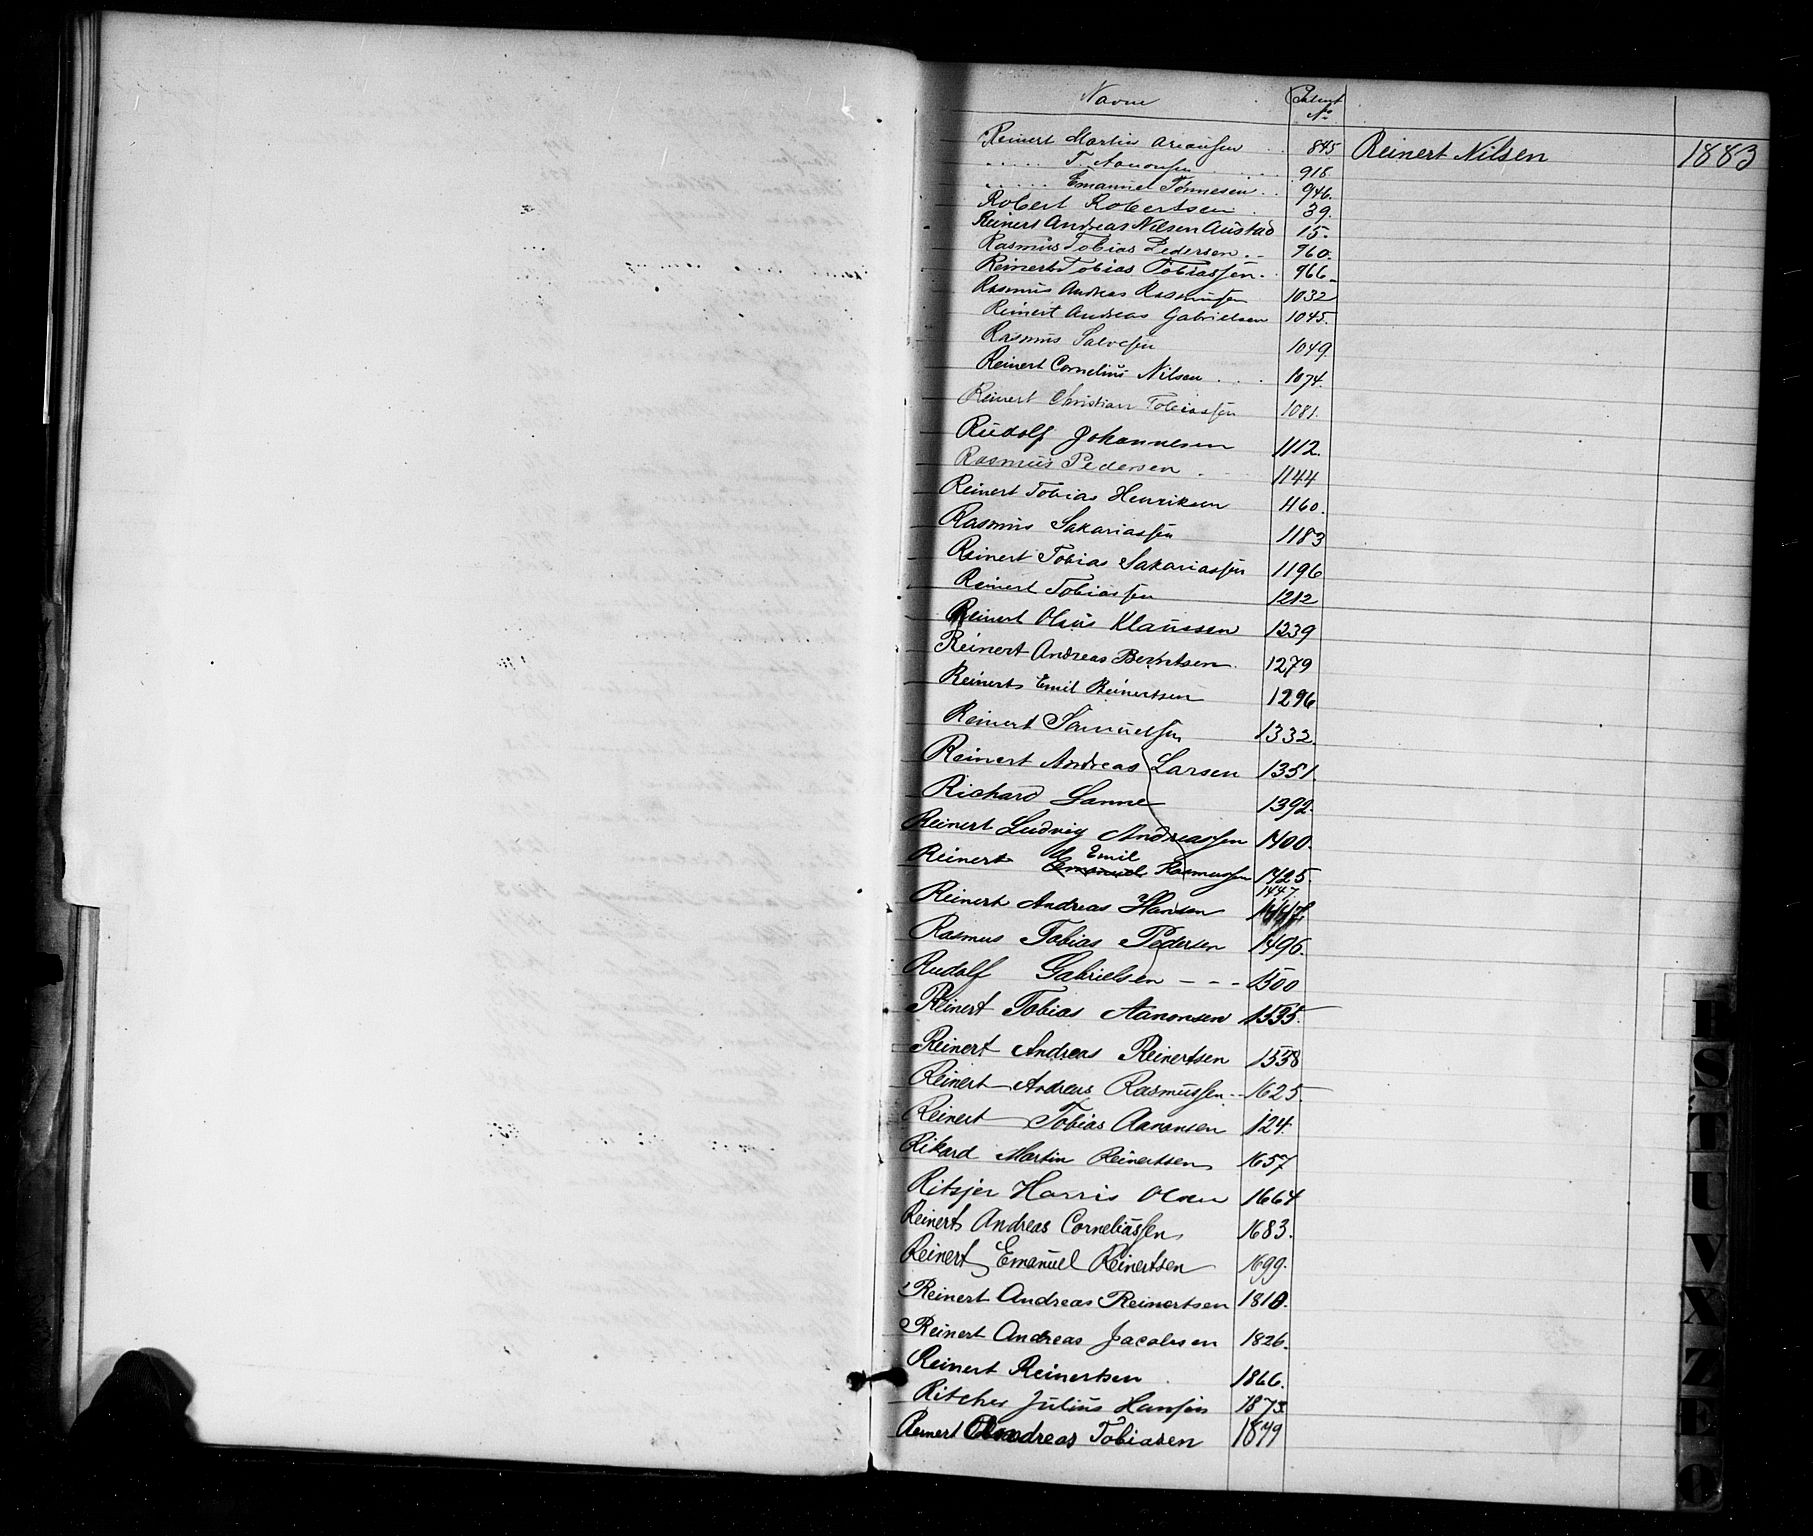 Navne Patent No
Reinert Martin Arian∫en 845 Reinert Nilsen 1883
..... T. Aanon∫en 918
..... Emanuel Tønnesen 946.
Robert Robertsen 39.
Reinert Andreas Nilsen Austad 15.
Rasmus Tobias Pedersen 960.
Reinert Tobias Tobias∫en 966
Rasmus Andreas Rasmus∫en 1032
Reinert Andreas Gabrielsen 1045.
Rasmus Salve∫en 1049
Reinert Cornelius Nilsen 1074.
Reinert Christian Tobias∫en 1081.
Rudolf Johannesen 1112.
Rasmus Pedersen 1144
Reinert Tobias Henriksen 1160.
Rasmus Sakarias∫en 1183
Reinert Tobias Sakarias∫en 1196
Reinert Tobias∫en 1212
Reinert Olaus Klaussen 1239
Reinert Andreas Berntsen 1279
Reinert Emil Reinertsen 1296
Reinert Samuel∫en 1332.
Reinert Andreas Larsen 1351.
Richard Sanne 1392.
Reinert Ludvig Andreas∫en 1400.
Emil
Reinert Emanuel Rasmussen 1425.
1447
Reinert Andreas Hansen 1447
Rasmus Tobias Pedersen 1496.
Rudolf Gabrielsen - - - 1500
Reinert Tobias Aanonsen 1535.
Reinert Andreas Reinertsen 1558
Reinert Andreas Rasmus∫en -- 1625
Reinert Tobias Aanonsen 124.
Rikard Martin Reinertsen 1657
Ritsjer Harris Olsen 1664
Reinert Andreas Cornelius∫en 1683.
Reinert Emanuel Reinertsen 1699.
Reinert Andreas Reinertsen 1810.
Reinert Andreas Jacobsen 1826.
Reinert Reinertsen 1866.
Ritcher Julius Han∫en 1873.
Reinert Andreas Tobiasen 1879
R
S
T
U
V
X
Z
Æ
Ø